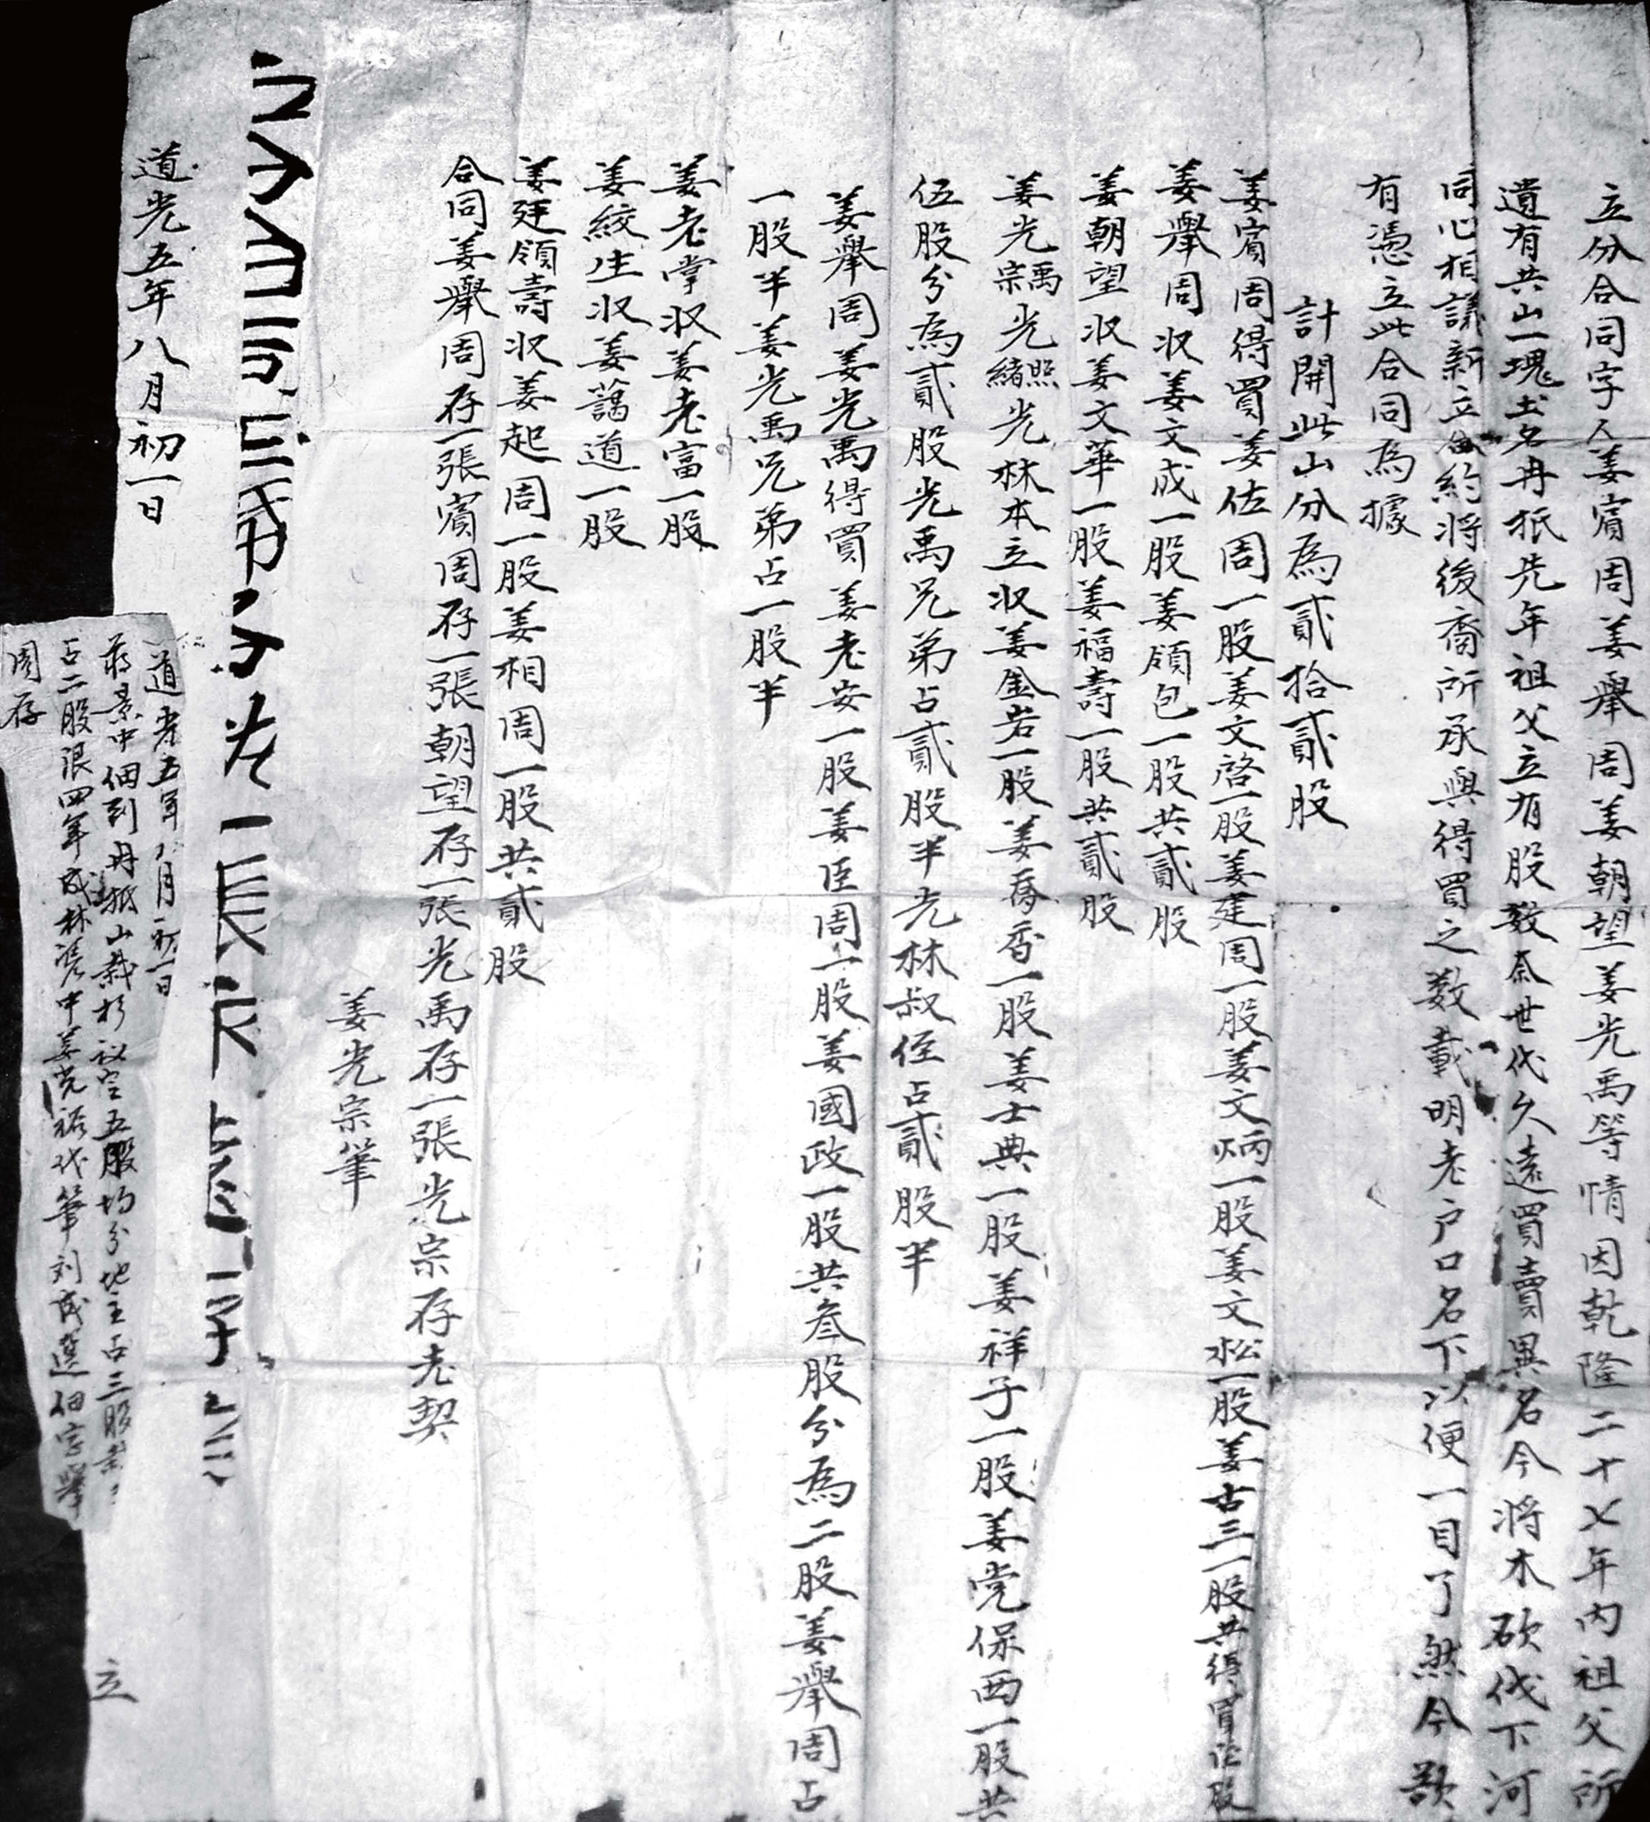 立分合同字人姜賓周姜舉周姜朝望姜光禹等情因乾隆二十七年內祖父所
遺有共山一塊土名冉抵先年祖父立有股數奈世代久遠買賣異名今將木砍伐下河
同心相議新立合約將後裔所承與得買之數載明老户口名下以便一目了然今欲
有憑立此合同為據
計開此山分為貳拾貳股
姜賓周得買姜佐周一股姜文啓一股姜建周一股姜文炳一股姜文松一股姜古三一股共得買陸股
姜舉周収姜文成一股姜領包一股共貳股
姜朝望収姜文華一股姜福壽一股共貳股
姜光禹宗光照緒光林本立収姜金岩一股姜喬香一股姜士典一股姜祥子一股姜党保西一股共
伍股分為貳股光禹兄弟占貳股半光林叔侄占貳股半
姜舉周姜光禹得買姜老安一股姜臣周一股姜國政一股共叁股分為二股姜舉周占
一股半姜光禹兄弟占一股半
姜老掌収姜老富一股
姜絞生収姜藹道一股
姜廷領壽収姜起周一股姜相周一股共貳股
合同姜舉周存一張賓周存一張朝望存一張光禹存一張光宗存老契
姜光宗筆
道光五年八月初一日
立
道光五年八月初一日
蔣景中佃到冉抵山栽杉议定五股均分地主占三股
占二股限四年成林憑中姜光裕代筆刘成選佃字舉
周存